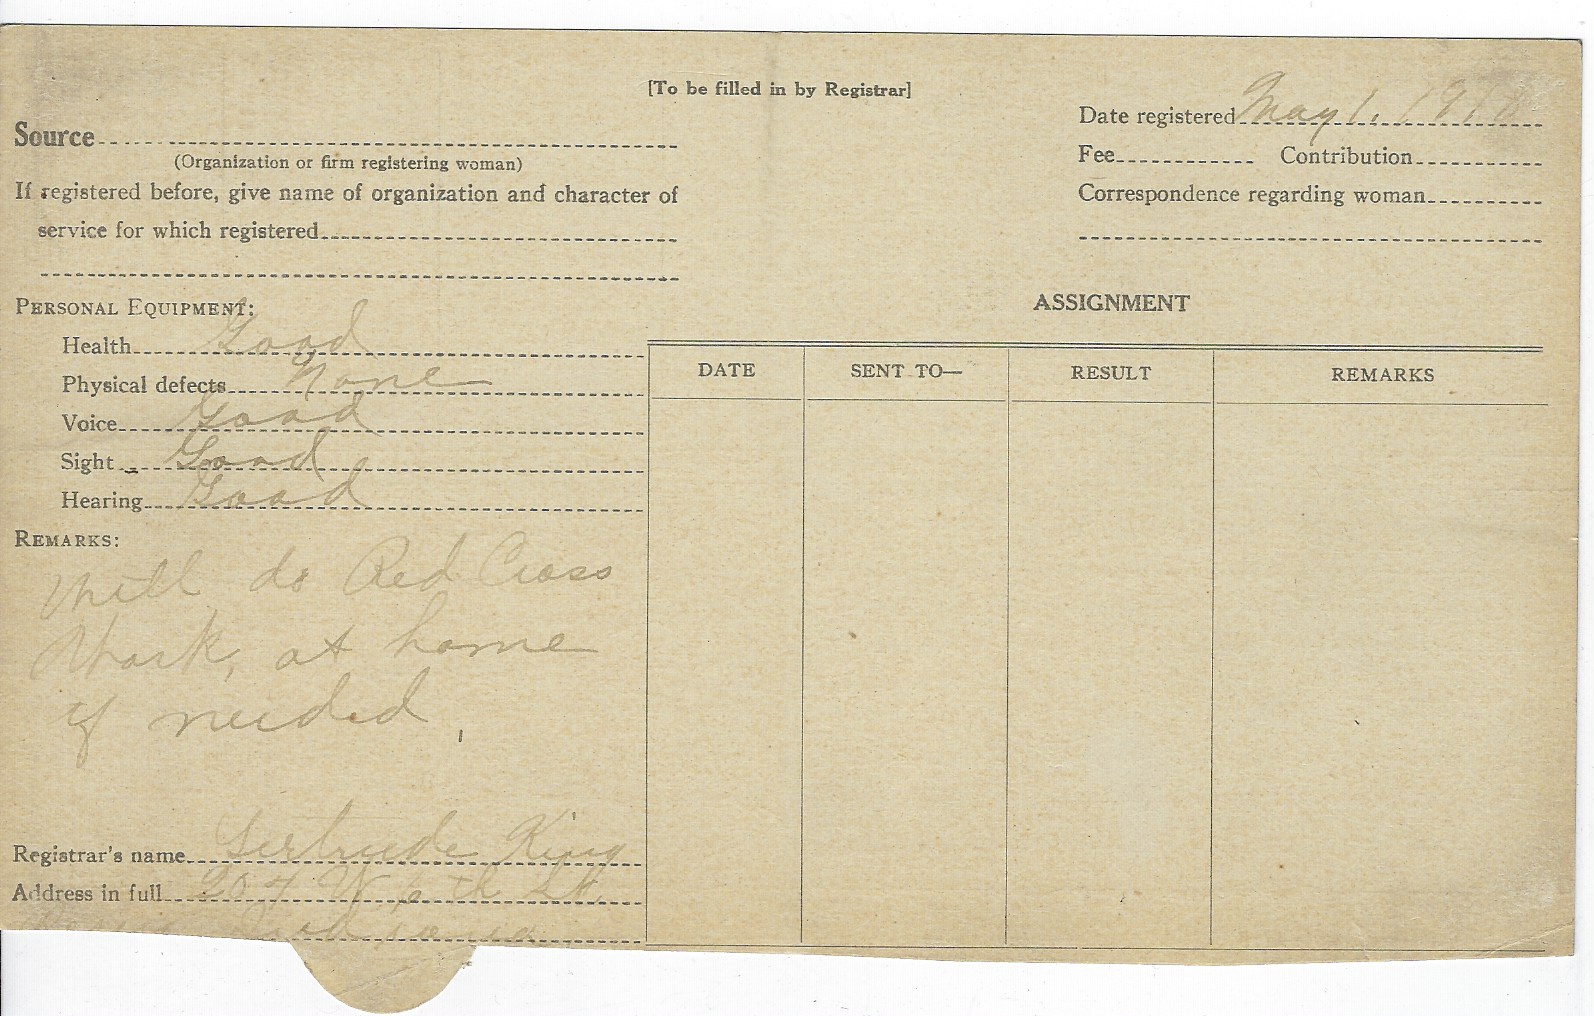 [To be filled in by Registrar]
Source
(Organization or firm registering woman)
If registered before, give name of organization and character of
service for which registered
Date registered May 1, 1918
Fee Contribution
Correspondence regarding woman
PERSONAL EQUIPMENT:
Health Good
Physical defects None
Voice Good
Sight Good
Hearing Good
REMARKS:
Will do Red Cross
Work, at home
if needed.
Registrar's name Gertrude King
Address in full 204 W. 6th St.
Indiana
ASSIGNMENT
DATE SENT TO— RESULT REMARKS